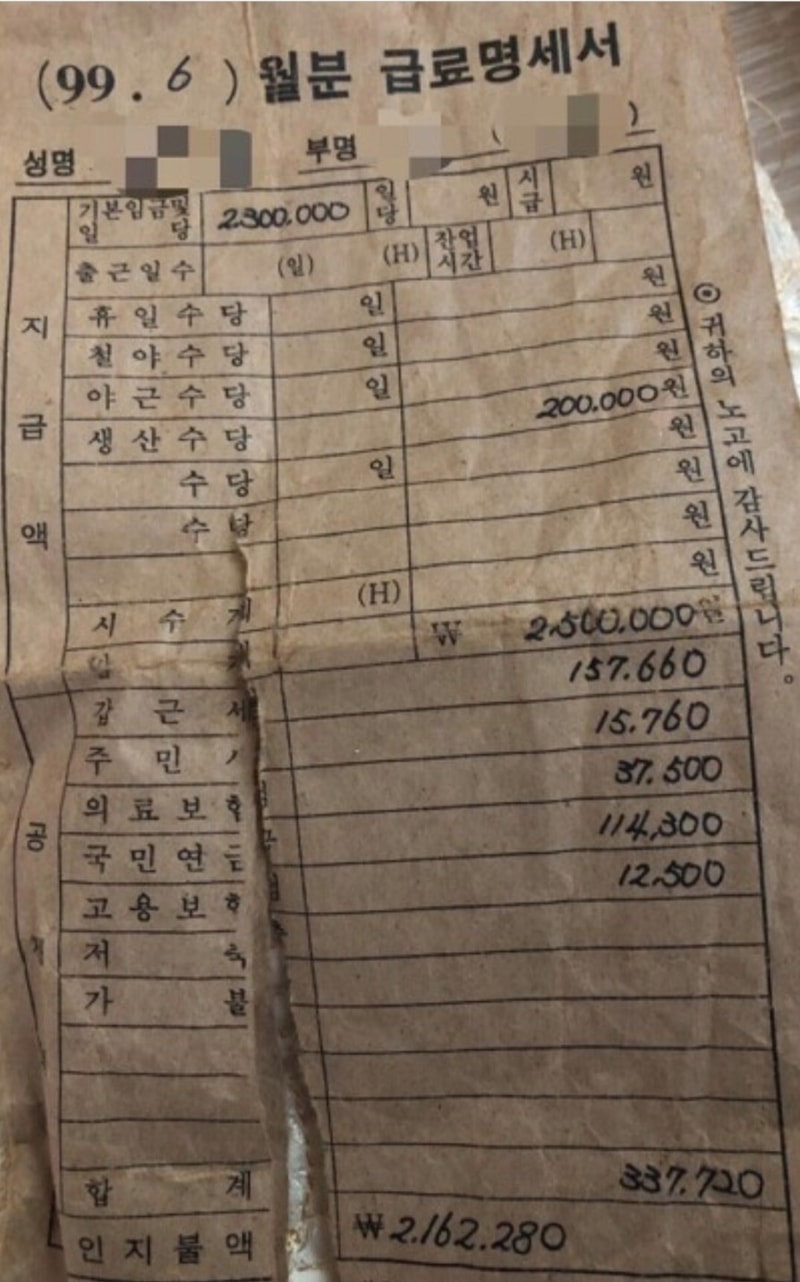 (99.6) 월분 급료명세서
성명 부명 ( )
지급액
기본임금및일당 2300.000 일당 원 시급 원
출근일수 (일) (H) 잔업시간 (H)
원
휴일수당 일 원
철야수당 일 원
야근수당 일 200.000원
생산수당 원
수당 일 원
수당 원
원
시수계 (H)
₩ 2.500.000원
공
갑근세 157.660
주민 15.760
의료보험 37.500
국민연금 114,300
고용보험 12.500
저축
가불
합계 337.720
인지불액 ₩2.162.280
⊙ 귀하의 노고에 감사드립니다.